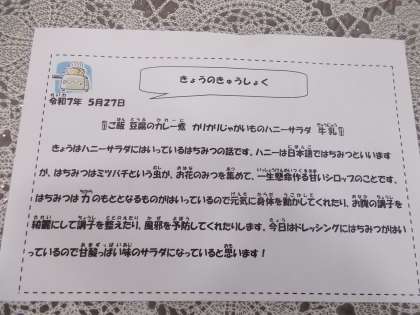 きょうのきゅうしょく
令和7年 5月27日
『ご飯 豆腐のカレー煮 カリカリじゃがいものハニーサラダ 牛乳』
きょうはハニーサラダにはいっているはちみつの話です。ハニーは日本語ではちみつといいます
が、はちみつはミツバチという虫が、お花のみつを集めて、一生懸命作る甘いシロップのことです。
はちみつは力のもととなるものがはいっているので元気に身体を動かしてくれたり、お腹の調子を
綺麗にして調子を整えたり、風邪を予防してくれたりします。今日はドレッシングにはちみつがはい
っているので甘酸っぱい味のサラダになっていると思います!